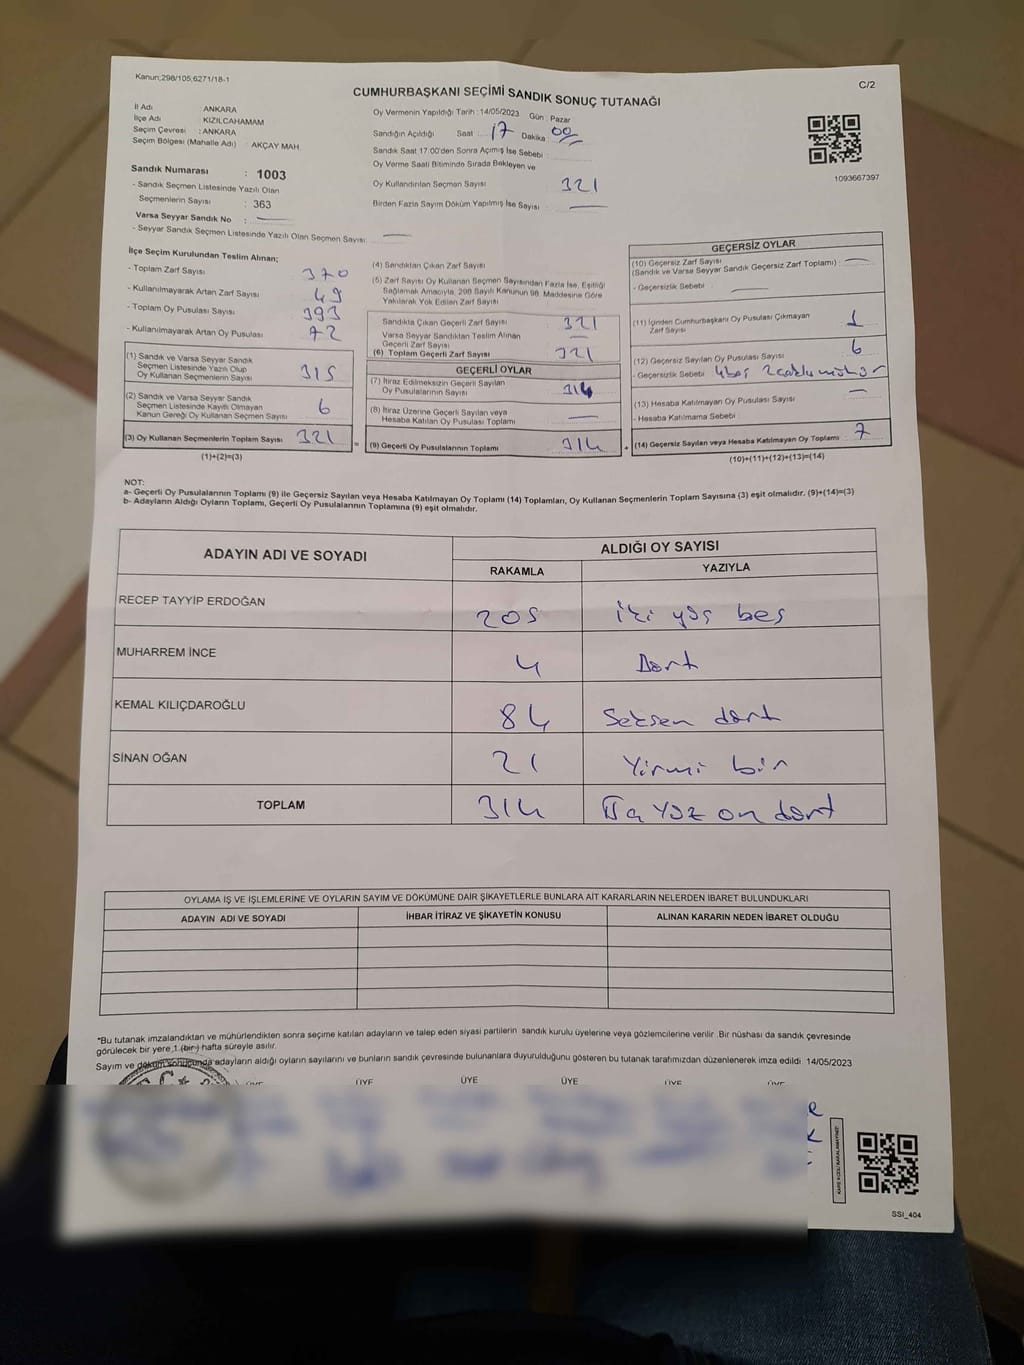 Kanun;298/105;6271/18-1
C/2
CUMHURBAŞKANI SEÇİMİ SANDIK SONUÇ TUTANAĞI
İl Adı ANKARA
İlçe Adı KIZILCAHAMAM
Seçim Çevresi : ANKARA
Seçim Bölgesi (Mahalle Adı) : AKÇAY MAH
Sandık Numarası : 1003
- Sandık Seçmen Listesinde Yazılı Olan
Seçmenlerin Sayısı : 363
Varsa Seyyar Sandık No :
- Seyyar Sandık Seçmen Listesinde Yazılı Olan Seçmen Sayısı:
Oy Vermenin Yapıldığı Tarih : 14/05/2023 Gün : Pazar
Sandığın Açıldığı Saat : 17 Dakika 00
Sandık Saat 17:00'den Sonra Açılmış İse Sebebi :
Oy Verme Saati Bitiminde Sırada Bekleyen ve
Oy Kullandırılan Seçmen Sayısı 321
Birden Fazla Sayım Döküm Yapılmış İse Sayısı :
1093667397
İlçe Seçim Kurulundan Teslim Alınan;
- Toplam Zarf Sayısı 370
- Kullanılmayarak Artan Zarf Sayısı 49
- Toplam Oy Pusulası Sayısı 393
- Kullanılmayarak Artan Oy Pusulası 72
(1) Sandık ve Varsa Seyyar Sandık
Seçmen Listesinde Yazılı Olup
Oy Kullanan Seçmenlerin Sayısı 315
(2) Sandık ve Varsa Seyyar Sandık
Seçmen Listesinde Kayıtlı Olmayan
Kanun Gereği Oy Kullanan Seçmen Sayısı 6
(3) Oy Kullanan Seçmenlerin Toplam Sayısı 321
(1)+(2)=(3)
(4) Sandıktan Çıkan Zarf Sayısı
(5) Zarf Sayısı Oy Kullanan Seçmen Sayısından Fazla İse, Eşitliği
Sağlamak Amacıyla, 298 Sayılı Kanunun 98. Maddesine Göre
Yakılarak Yok Edilen Zarf Sayısı
Sandıkta Çıkan Geçerli Zarf Sayısı 321
Varsa Seyyar Sandıktan Teslim Alınan
Geçerli Zarf Sayısı
(6) Toplam Geçerli Zarf Sayısı 321
GEÇERLİ OYLAR
(7) İtiraz Edilmeksizin Geçerli Sayılan
Oy Pusulalarının Sayısı 314
(8) İtiraz Üzerine Geçerli Sayılan veya
Hesaba Katılan Oy Pusulası Toplamı
= (9) Geçerli Oy Pusulalarının Toplamı 314 +
GEÇERSİZ OYLAR
(10) Geçersiz Zarf Sayısı
(Sandık ve Varsa Seyyar Sandık Geçersiz Zarf Toplamı) :
- Geçersizlik Sebebi :
(11) İçinden Cumhurbaşkanı Oy Pusulası Çıkmayan
Zarf Sayısı 1
(12) Geçersiz Sayılan Oy Pusulası Sayısı 6
- Geçersizlik Sebebi 4 boş 2 çoklu mühür
(13) Hesaba Katılmayan Oy Pusulası Sayısı
- Hesaba Katılmama Sebebi :
(14) Geçersiz Sayılan veya Hesaba Katılmayan Oy Toplamı 7
(10)+(11)+(12)+(13)=(14)
NOT:
a- Geçerli Oy Pusulalarının Toplamı (9) ile Geçersiz Sayılan veya Hesaba Katılmayan Oy Toplamı (14) Toplamları, Oy Kullanan Seçmenlerin Toplam Sayısına (3) eşit olmalıdır. (9)+(14)=(3)
b- Adayların Aldığı Oyların Toplamı, Geçerli Oy Pusulalarının Toplamına (9) eşit olmalıdır.
ADAYIN ADI VE SOYADI ALDIĞI OY SAYISI
RAKAMLA YAZIYLA
RECEP TAYYİP ERDOĞAN 205 iki yüz beş
MUHARREM İNCE 4 Dört
KEMAL KILIÇDAROĞLU 84 Seksen dört
SİNAN OĞAN 21 Yirmi bir
TOPLAM 314 yüz on dört
OYLAMA İŞ VE İŞLEMLERİNE VE OYLARIN SAYIM VE DÖKÜMÜNE DAİR ŞİKAYETLERLE BUNLARA AİT KARARLARIN NELERDEN İBARET BULUNDUKLARI
ADAYIN ADI VE SOYADI İHBAR İTİRAZ VE ŞİKAYETİN KONUSU ALINAN KARARIN NEDEN İBARET OLDUĞU
*Bu tutanak imzalandıktan ve mühürlendikten sonra seçime katılan adayların ve talep eden siyasi partilerin sandık kurulu üyelerine veya gözlemcilerine verilir .Bir nüshası da sandık çevresinde
görülecek bir yere 1 (bir) hafta süreyle asılır.
Sayım ve döküm sonucunda adayların aldığı oyların sayılarını ve bunların sandık çevresinde bulunanlara duyurulduğunu gösteren bu tutanak tarafımızdan düzenlenerek imza edildi. 14/05/2023
ÜYE ÜYE ÜYE ÜYE ÜYE ÜYE
SSI_404